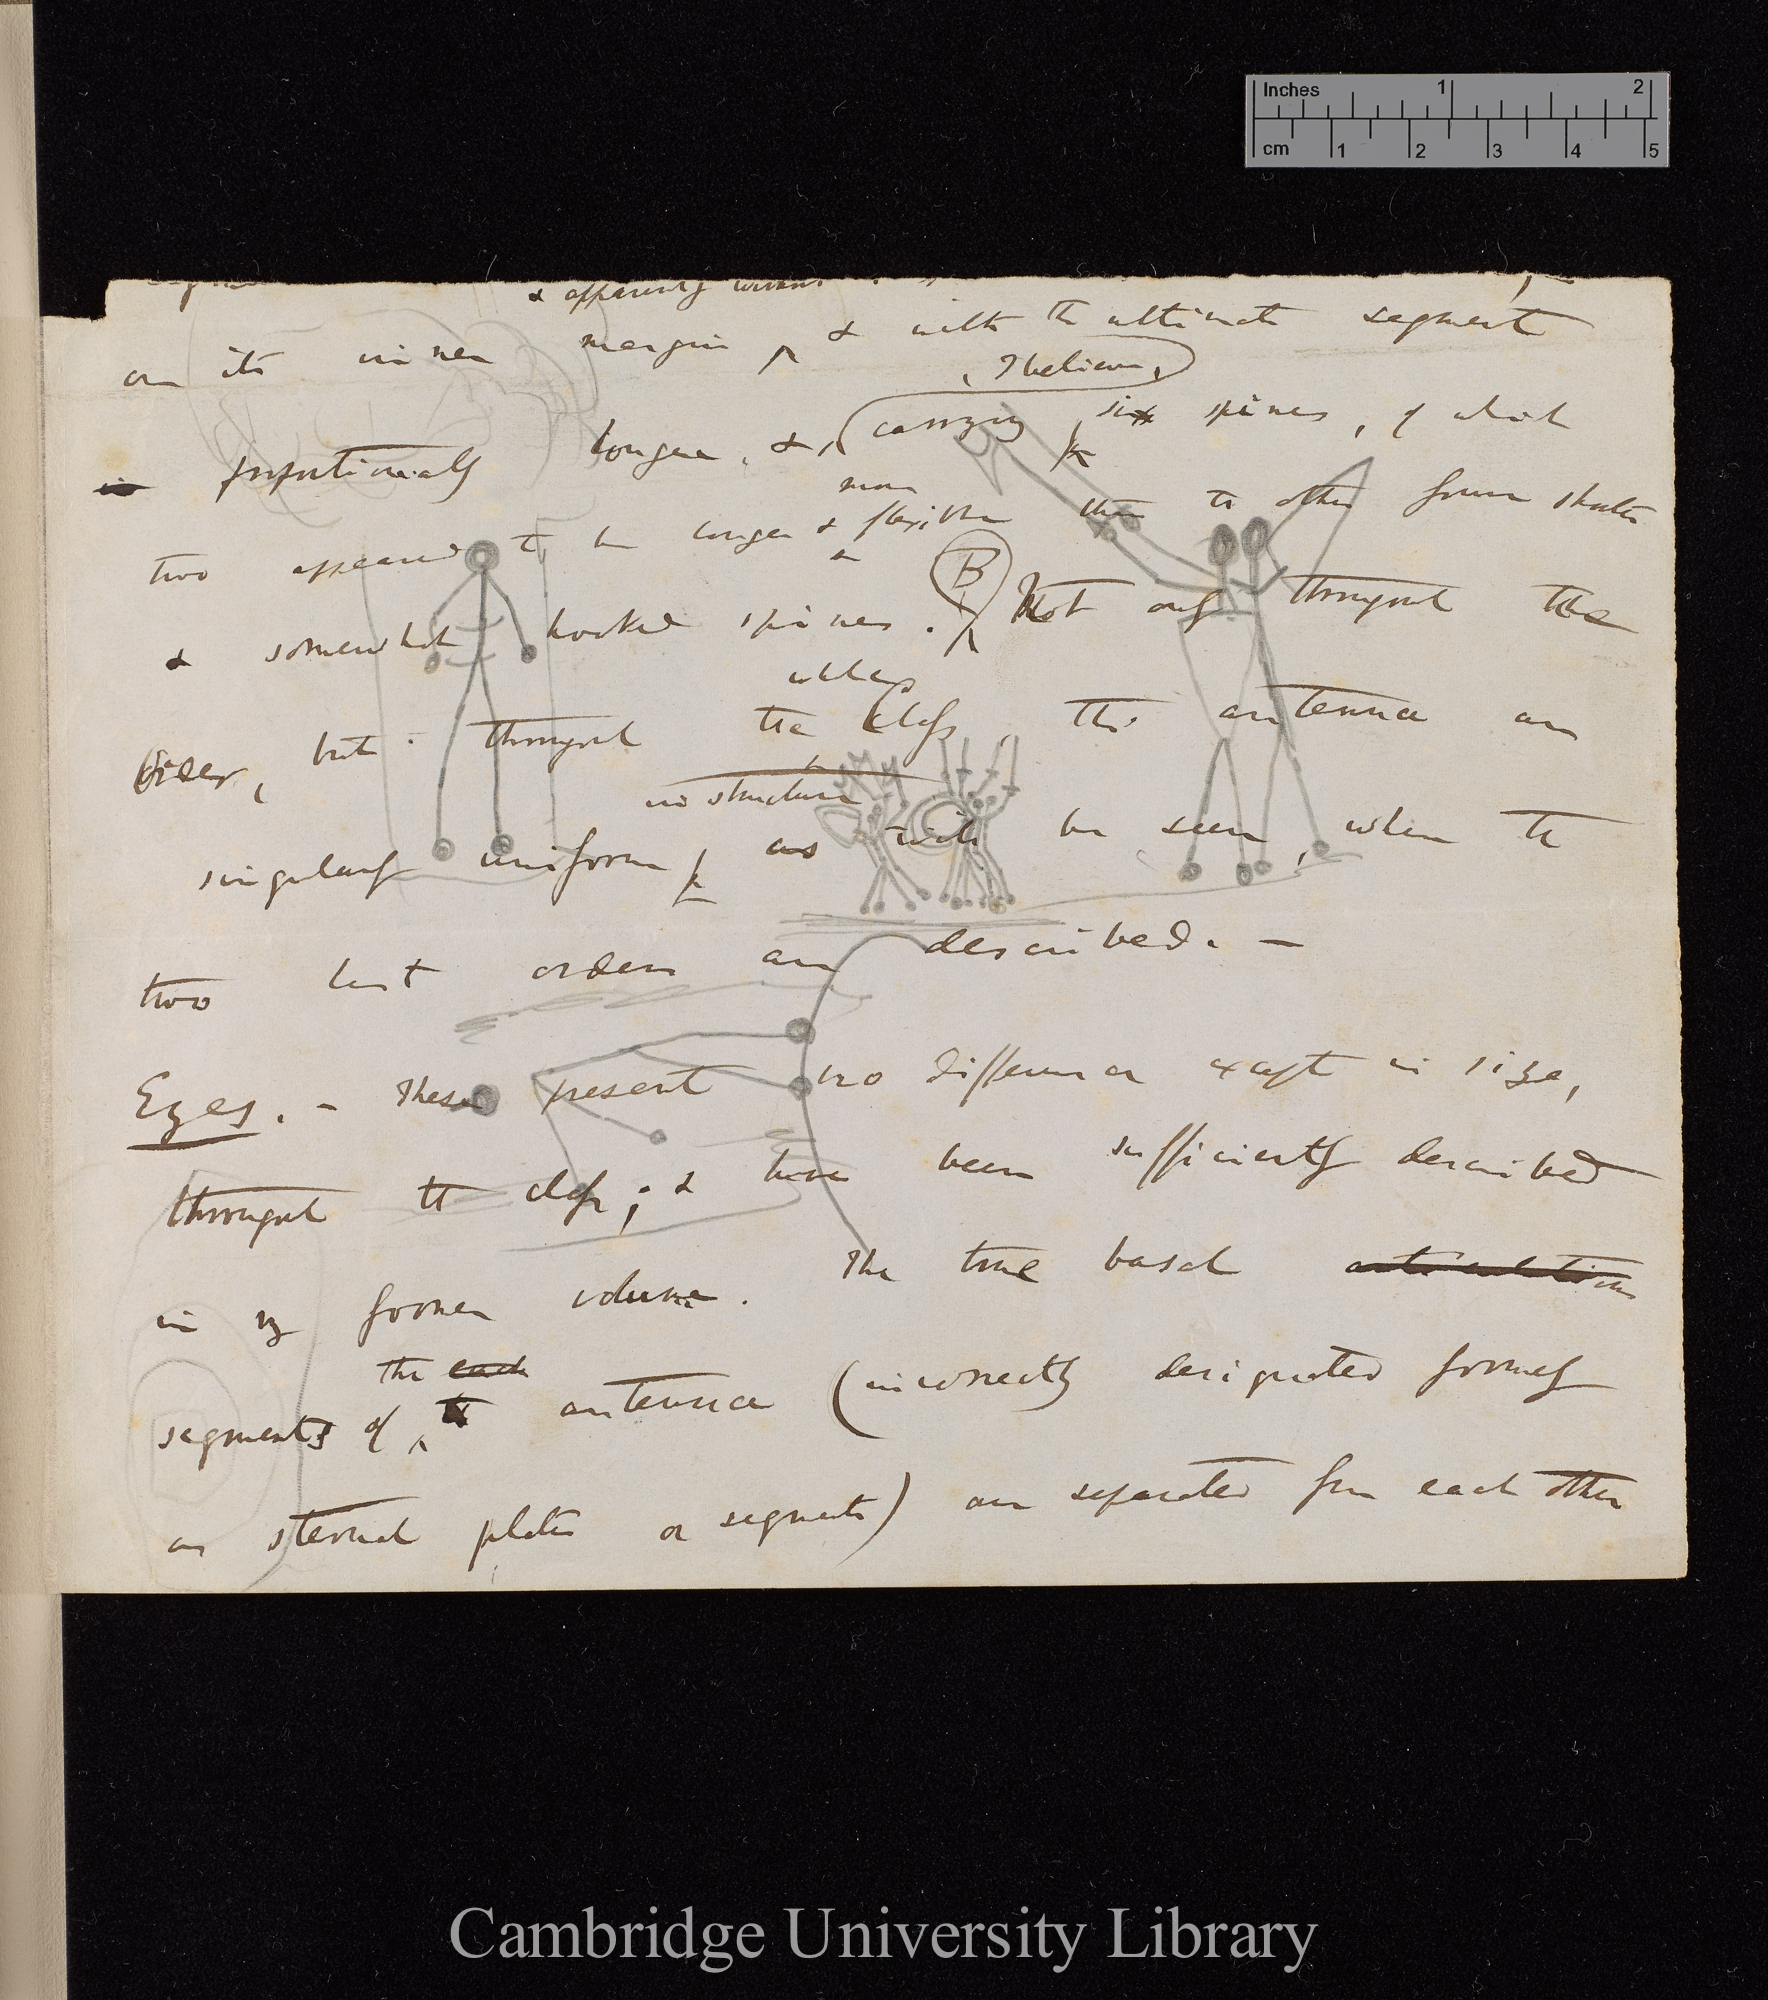 Inches 1 2
cm 1 2 3 4 5
& apparently without
on its inner margin, & with the ultimate segment
, I believe,
is proportionally longer, & carrying six spines, of which
more
two appeared to be longer & flexible than the other four shorter
B
& somewhat hooked spines. Not only throughout the
whole
Order, but throughout the Class, the antennæ are
in structure
singularly uniform, as will be seen, when the
two last orders are described. —
Eyes. — These present no difference except in size,
throughout the class; & have been sufficiently described
in my former volume. The true basal articulations
the each
segments of the antennæ (incorrectly designated formerly
as sternal plates or segments) are separated from each other
Cambridge University Library